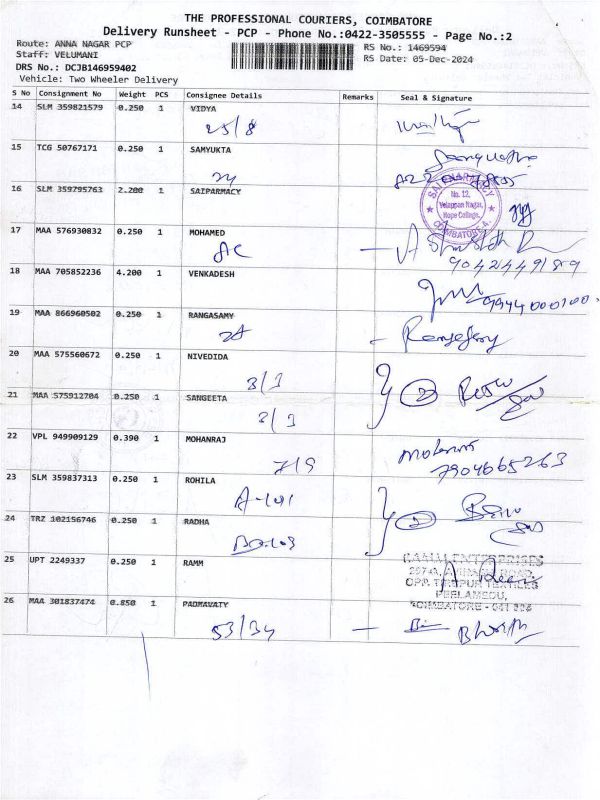 THE PROFESSIONAL COURIERS, COIMBATORE
Delivery Runsheet - PCP - Phone No.:0422-3505555 - Page No.:2
Route: ANNA NAGAR PCP
Staff: VELUMANI
RS No.: 1469594
DRS No.: DCJB146959402
RS Date: 05-Dec-2024
Vehicle: Two Wheeler Delivery
S No Consignment No Weight PCS Consignee Details Remarks Seal & Signature
14 SLM 359821579 0.250 1 VIDYA
25/8
15 TCG 50767171 0.250 1 SAMYUKTA
16 SLM 359795763 2.200 1 SAIPARMACY
No. 12,
Velappan Nagar,
Hope College,
COIMBATORE-4
17 MAA 576930832 0.250 1 MOHAMED
AC
9042449189
18 MAA 705852236 4.200 1 VENKADESH
9944000100
19 MAA 866960502 0.250 1 RANGASAMY
2A
20 MAA 575560672 0.250 1 NIVEDIDA
3/1
21 MAA 575912704 0.250 1 SANGEETA
3/1
22 VPL 949909129 0.390 1 MOHANRAJ
7/9
7904665263
23 SLM 359837313 0.250 1 ROHILA
A-101
24 TRZ 102156746 0.250 1 RADHA
25 UPT 2249337 0.250 1 RAMM
OPP. TIRUPUR TEXTILES
PEELAMEDU,
26 MAA 301837474 0.850 1 PADMAVATY
53/34
Bharath